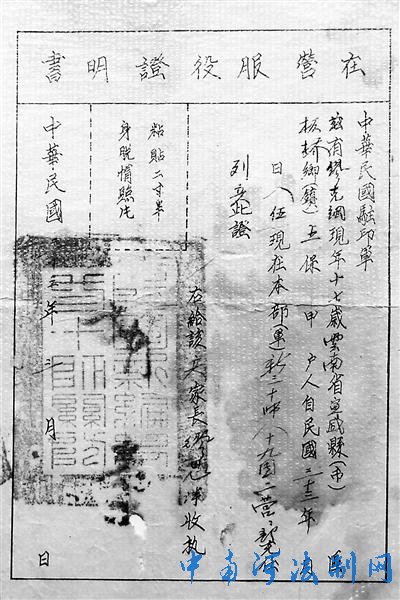 在營服役證明書
中華民國駐印軍
茲有繆克調現年十七歲雲南省宣威縣(市)
板橋鄉(鎮)五保 甲 戶人自民國三十三年 月
日入伍現在本部(軍)新三十師八十九團二營部
列兵此證
右給該兵家長收执
粘貼二寸半
身脫帽照片
中華民國 年 三 月 日
中南河法制网